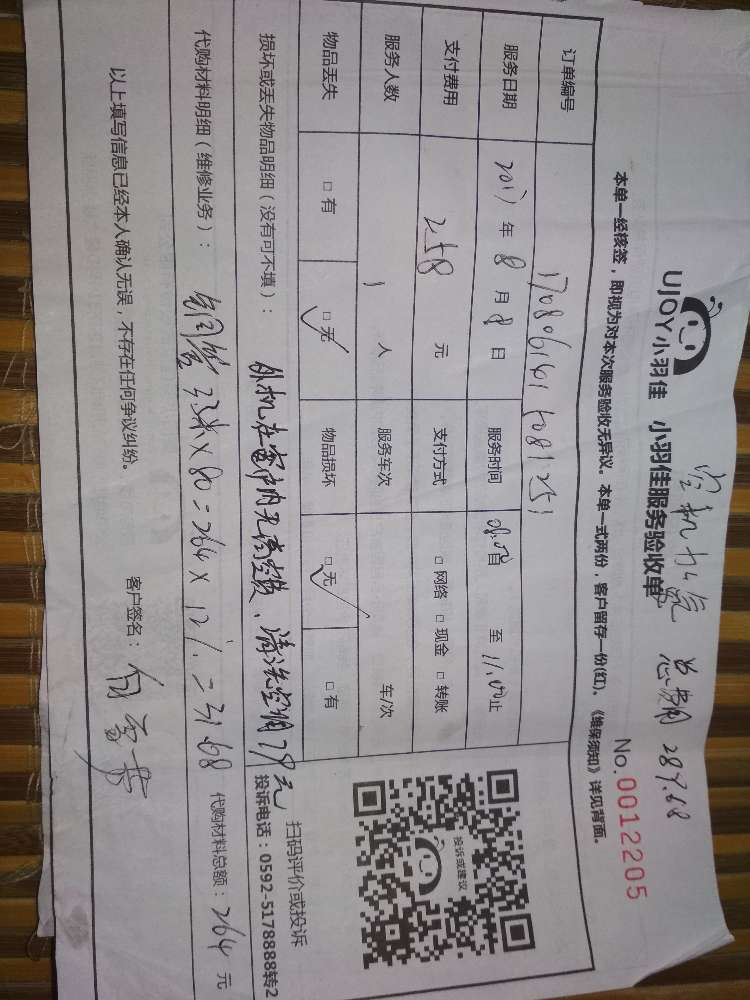 空机加氟 总费用 289.68
UJOY小羽佳 小羽佳服务验收单
No.0012205
本单一经核签，即视为对本次服务验收无异议。本单一式两份，客户留存一份(红)。《维保须知》详见背面。
订单编号 1708061615081251
服务日期 2017年8月8日 服务时间 至11:00止
支付费用 258元 支付方式 □网络 □现金 □转账
服务人数 1人 服务车次 车/次
物品丢失 □有 □无 物品损坏 □无 □有
投诉或建议
扫码评价或投诉
投诉电话：0592-5178888转2
损坏或丢失物品明细（没有可不填）： 外机在窗户内无高空费、清洗空调79元
代购材料明细（维修业务）： 铜管 3.3米×80=264×12%=31.68 代购材料总额：264元
以上填写信息已经本人确认无误，不存在任何争议纠纷。 客户签名：